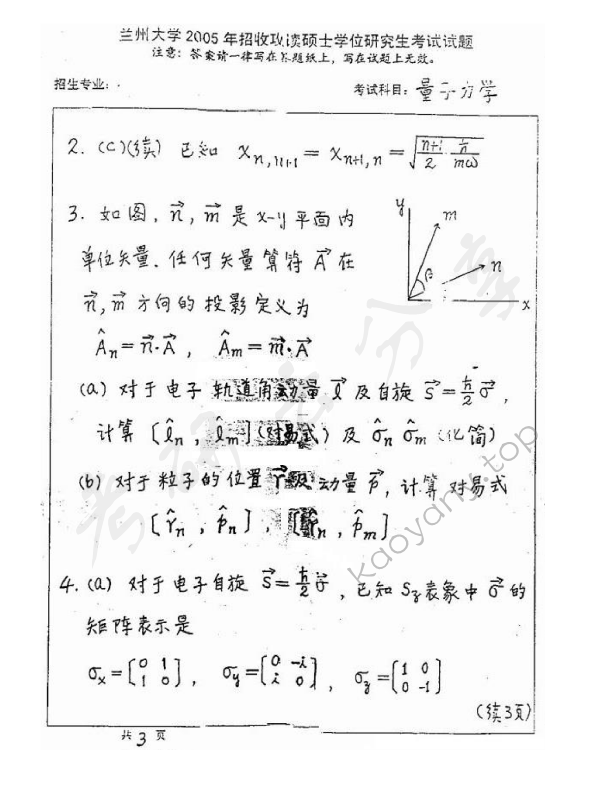 兰州大学 2005 年招收攻读硕士学位研究生考试试题
注意：答案请一律写在答题纸上，写在试题上无效。
招生专业：
考试科目：量子力学
2. (c)(续) 已知 x_{n,n+1} = x_{n+1,n} = \sqrt{\frac{n+1}{2} \cdot \frac{\hbar}{m\omega}}
3. 如图，\vec{n}, \vec{m} 是 x-y 平面内
单位矢量、任何矢量算符 \vec{A} 在
\vec{n}, \vec{m} 方向的投影定义为
\hat{A}_n = \vec{n}·\vec{A}, \hat{A}_m = \vec{m}·\vec{A}
y
m
β
n
x
(a) 对于电子轨道角动量 \vec{l} 及自旋 \vec{s} = \frac{\hbar}{2}\vec{σ},
计算 [\hat{l}_n, \hat{l}_m] (对易式) 及 \hat{σ}_n \hat{σ}_m (化简)
(b) 对于粒子的位置 \vec{r} 及动量 \vec{p}, 计算对易式
[\hat{r}_n, \hat{p}_n], [\hat{r}_n, \hat{p}_m]
4. (a) 对于电子自旋 \vec{s} = \frac{\hbar}{2}\vec{σ}, 已知 S_z 表象中 \vec{σ} 的
矩阵表示是
σ_x = \begin{bmatrix} 0 & 1 \\ 1 & 0 \end{bmatrix}, σ_y = \begin{bmatrix} 0 & -i \\ i & 0 \end{bmatrix}, σ_z = \begin{bmatrix} 1 & 0 \\ 0 & -1 \end{bmatrix}
(续3页)
共 3 页
kaoyany.top